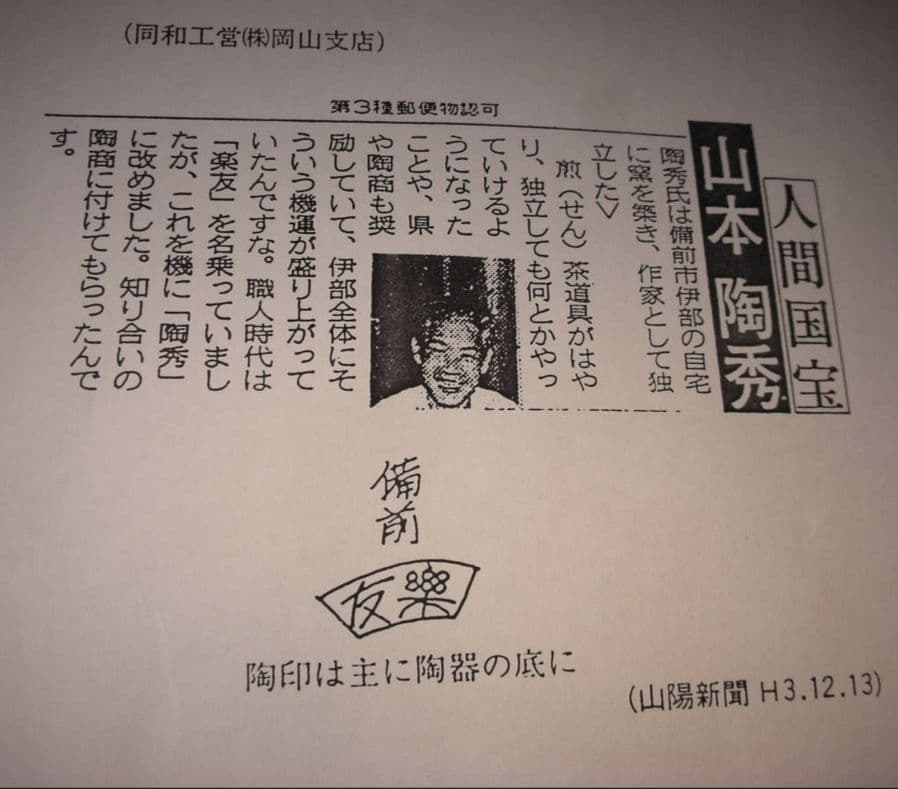 (同和工営㈱岡山支店)
第3種郵便物認可
人間国宝
山本陶秀
陶秀氏は備前市伊部の自宅
に窯を築き、作家として独
立した〉
煎(せん)茶道具がはや
り、独立しても何とかやっ
ていけるよ
うになった
ことや、県
や陶商も奨
励していて、伊部全体にそ
ういう機運が盛り上がって
いたんですな。職人時代は
「楽友」を名乗っていまし
たが、これを機に「陶秀」
に改めました。知り合いの
陶商に付けてもらったんで
す。
備前
樂友
陶印は主に陶器の底に
(山陽新聞 H3.12.13)